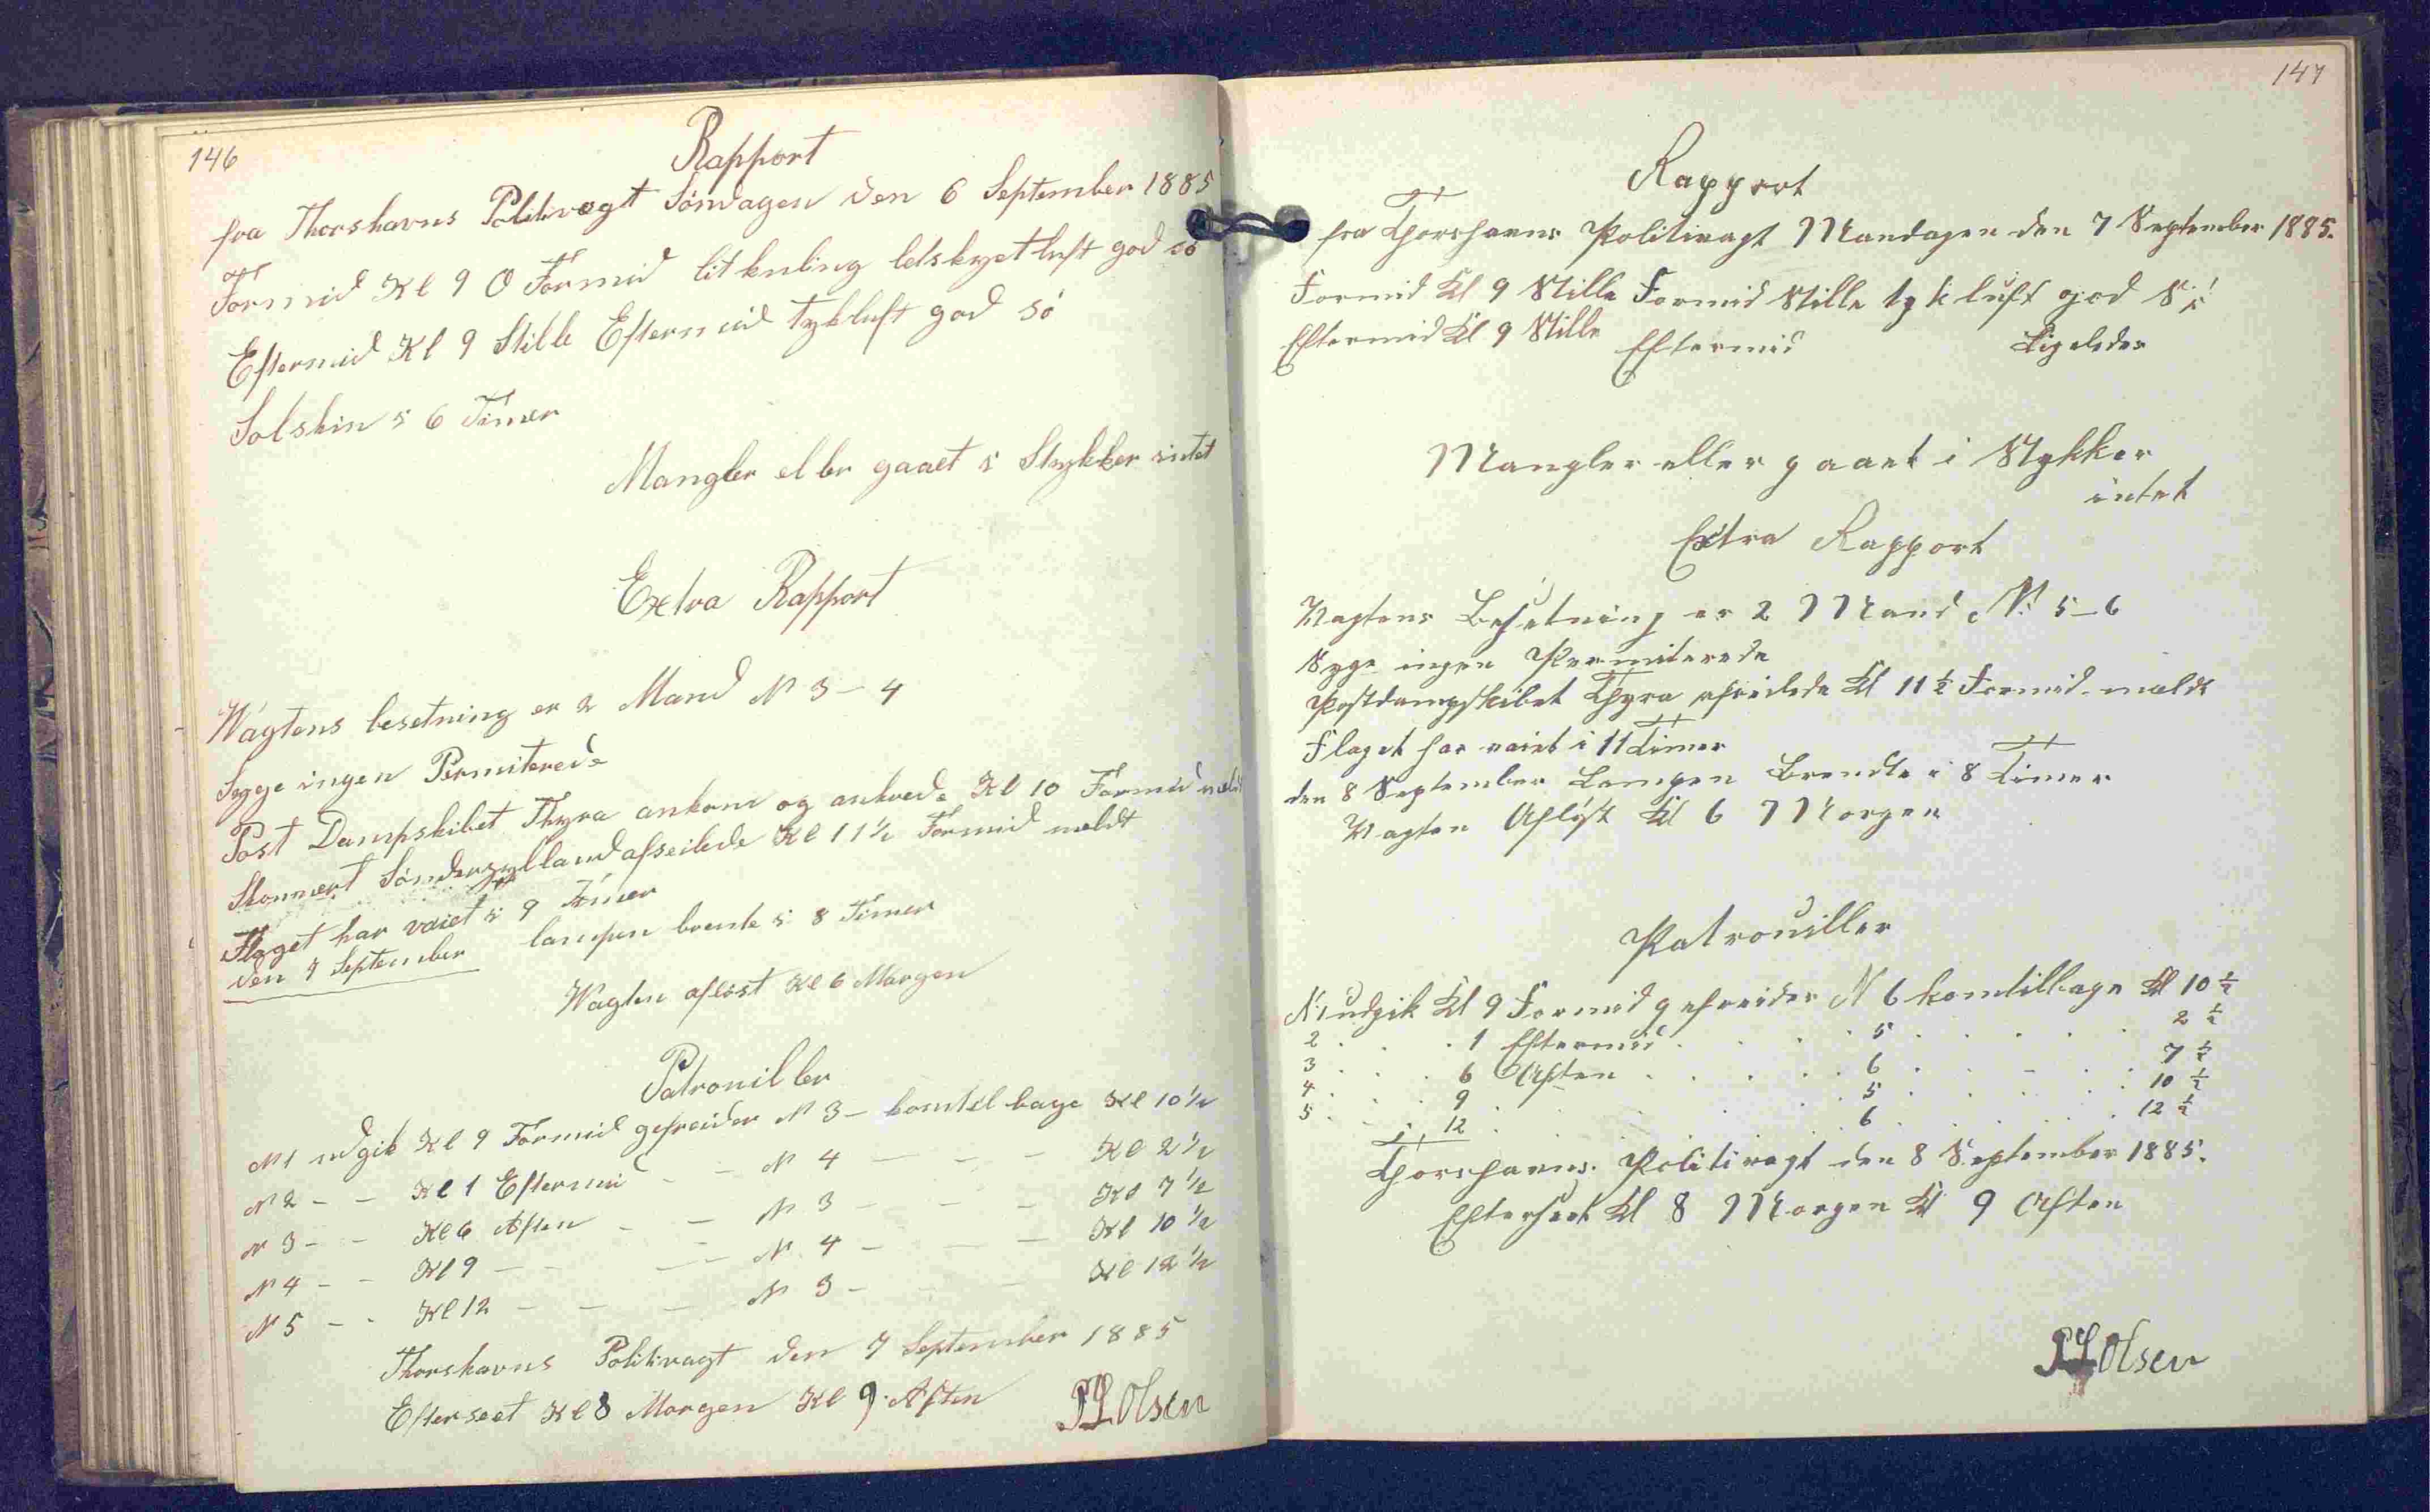 146
Rapport
fra Thorshavns Politivagt Söndagen den 6 September 1885
Formid Kl 9 O Formid litkuling letskyet luft god sö
Eftermid Kl 9 Stille Eftermid tykluft god sö
Solskin i 6 Timer
Mangler eller gaaet i Stykker intet
Extra Rapport
Wagtens besetning er 2 Mand N 3 - 4
Sygge ingen Permiterede
Post Dampskibet Thyra ankom og ankrede Kl 10 Formid meldt
Skonnert Sönderjylland afseilede Kl 11 1/2 Formid meldt
Flaget har vaiet i 9 Timer
den 7 September lampen brente i 8 Timer
Wagten aflöst Kl 6 Morgen
Patrouiller
N 1 udgik Kl 9 Formid gefreider N 3 - komtilbage Kl 10 1/2
N 2 - - Kl 1 Eftermid - - N 4 - - - Kl 2 1/2
N 3 - - Kl 6 Aften - - N 3 - - - Kl 7 1/2
N 4 - - Kl 9 - - - - N 4 - - - Kl 10 1/2
N 5 - - Kl 12 - - - N 3 - - - Kl 12 1/2
Thorshavns Politivagt den 7 September 1885
Efterseet Kl 8 Morgen Kl 9 Aften
Olsen
147
Rapport
fra Thorshavns Politivagt Mandagen den 7 September 1885.
Formid Kl 9 Stille Formid Stille tykluft god Sö
Eftermid Kl 9 Stille Eftermid Ligeledes
Mangler eller gaaet i Stykker
intet
Extra Rapport
Vagtens Besetning er 2 Mand N: 5-6
Syge ingen Permiterede
Postdampskibet Thyra afseilede Kl 11 1/2 Formid meldt
Flaget har vaiet i 11 Timer
den 8 September Lampen Brendte i 8 Timer
Vagten Aflöst Kl 6 Morgen
Patrouiller
N: 1 udgik Kl 9 Formid gefreider N 6 komtilbage Kl 10 1/2
2 . . . 1 Eftermid . . . 5 . . . . 2 1/2
3 . . . 6 Aften . . . . 6 . . . . 7 1/2
4 . . . 9 . . . . . 5 . . . . 10 1/2
5 . . . 12 . . . . . 6 . . . . 12 1/2
Thorshavns Politivagt den 8 September 1885.
Efterseet Kl 8 Morgen Kl 9 Aften
Olsen